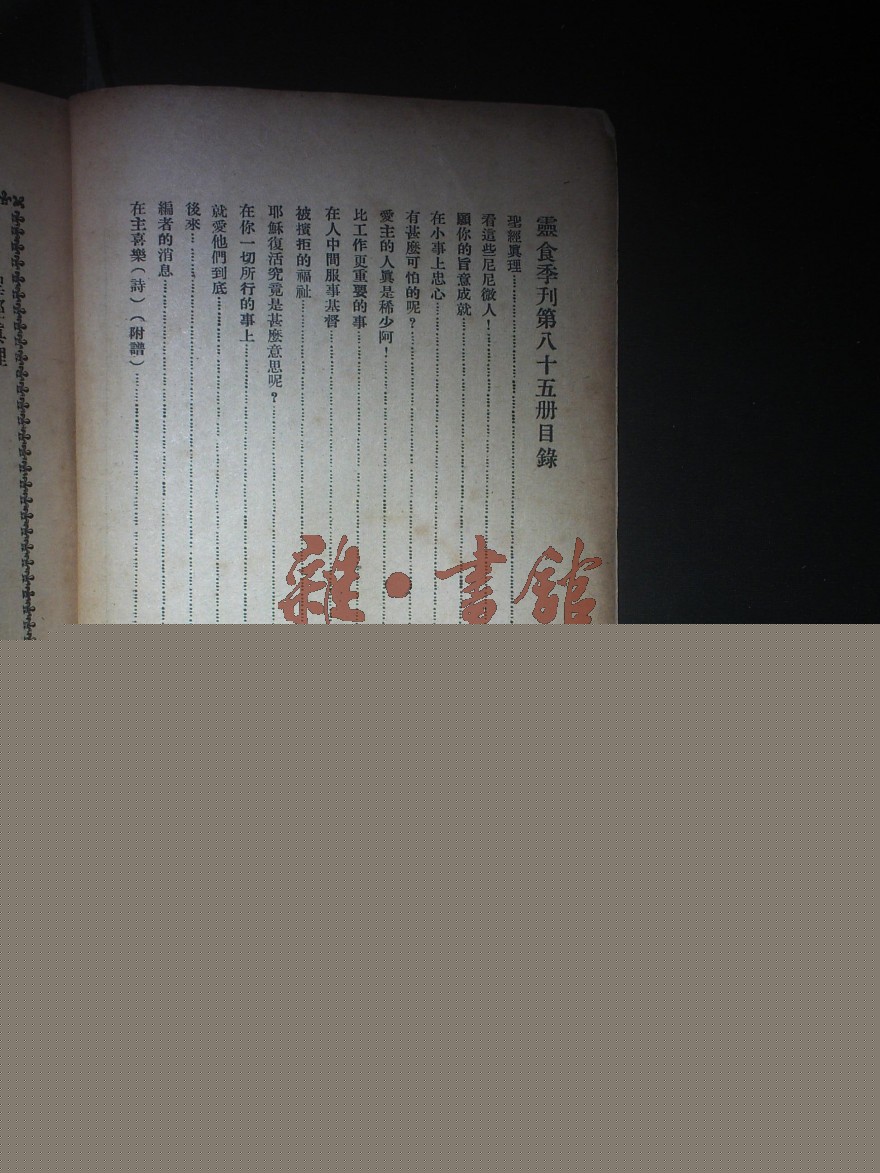 靈食季刊第八十五册目錄
聖經眞理
看這些尼尼微人！
願你的旨意成就
在小事上忠心
有甚麼可怕的呢？
愛主的人眞是稀少阿！
比工作更重要的事
在人中間服事基督
被擯拒的福祉
耶穌復活究竟是甚麼意思呢？
在你一切所行的事上
就愛他們到底
後來
編者的消息
在主喜樂（詩）（附譜）
雜·書館